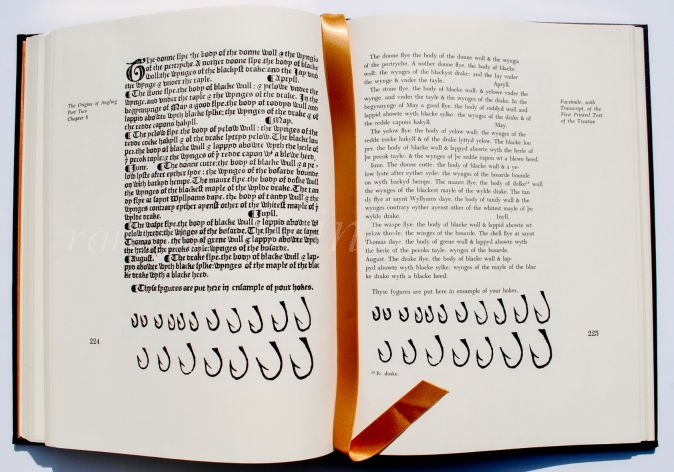 The Origins of Angling
Part Two
Chapter 6
The donne flye the body of the donne woll & the wyngis
of the pertryche. A nother donne flye. the body of blacke
woll: the wynges of the blackyst drake. and the Jay vnd
the wynge & vnder the tayle. ¶ Apryll.
¶ The stone flye. the body of blacke wull: & yelowe vnder the
wynge. and vnder the tayle & the wynges of the drake. In the
begynnynge of May a good flye. the body of roddyd wull and
lappid abowte wyth blacke sylke: the wynges of the drake & of
the redde capons hakyll. ¶ May.
¶ The yelow flye. the body of yelow wull: the wynges of the
redde cocke hakyll & of the drake lyttyd yelow. The blacke lou
per. the body of blacke wull & lappyd abowte wyth the herle of
þe pecok tayle: & the wynges of þe redde capon wt a blewe heed.
¶ June. ¶ The donne cutte: the body of blacke wull & a ye
low lyste after eyther syde: the wynges of the bosarde bounde
on with barkyd hempe. The maure flye. the body of doske wull
the wynges of the blackest mayle of the wylde drake. The tan
dy flye at saynt Wyllyams daye. the body of tandy wull & the
wynges contrary eyther ayenst other of the whitest mayle of þe
wylde drake. ¶ Juyll.
¶ The waspe flye. the body of blacke wull & lappid abowte wt
yelow threde: the winges of the bosarde. The shell flye at saynt
Thomas daye. the body of grene wull & lappyd abowte wyth
the herle of the pecoks tayle: wynges of the bosarde.
¶ August. ¶ The drake flye. the body of blacke wull & lap-
pyd abowte wyth blacke sylke: wynges of the mayle of the blac
ke drake wyth a blacke heed.
¶ Thyse fygures are put here in ensample of your hokes.
224
The donne flye the body of the donne woll & the wyngis
of the pertryche. A nother doone flye. the body of blacke
woll: the wynges of the blackyst drake: and the Jay vnder
the wynge & vnder the tayle. Apryll.
The stone flye. the body of blacke wull: & yelowe vnder the
wynge. and vnder the tayle & the wynges of the drake. In the
begynnynge of May a good flye. the body of roddyd wull and
lappid abowte wyth blacke sylke: the wynges of the drake & of
the redde capons hakyll. May.
The yelow flye. the body of yelow wull: the wynges of the
redde cocke hakyll & of the drake lyttyd yelow. The blacke lou
per. the body of blacke wull & lappyd abowte wyth the herle of
þe pecok tayle: & the wynges of þe redde capon wt a blewe heed.
June. The donne cutte: the body of blacke wull & a ye-
low lyste after eyther syde: the wynges of the bosarde bounde
on wyth barkyd hempe. The maure flye. the body of dolke²⁰ wull
the wynges of the blackest mayle of the wylde drake. The tan
dy flye at saynt Wyllyams daye. the body of tandy wull & the
wynges contrary eyther ayenst other of the whitest mayle of þe
wylde drake. Juyll.
The waspe flye. the body of blacke wull & lappid abowte wt
yelow threde: the winges of the bosarde. The shell flye at saynt
Thomas daye. the body of grene wull & lappyd abowte wyth
the herle of the pecoks tayle: wynges of the bosarde.
August. The drake flye. the body of blacke wull & lap-
pyd abowte wyth blacke sylke: wynges of the mayle of the blac
ke drake wyth a blacke heed.
Thyse fygures are put here in ensample of your hokes.
Facsimile, with
Transcript, of the
First Printed Text
of the Treatise
225
R: doske.